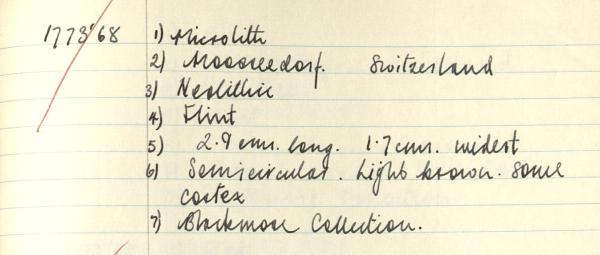 1773'68 1) Microlith
2) Moosseedorf. Switzerland
3) Neolithic
4) Flint
5) 2.9 cms. long. 1.7 cms. widest
6) Semicircular. Light brown. Some
cortex
7) Blackmore Collection.